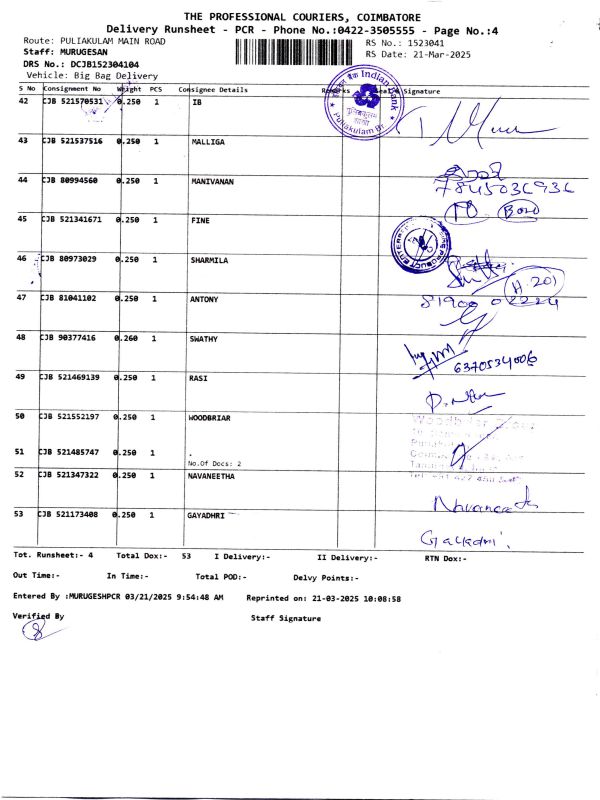 THE PROFESSIONAL COURIERS, COIMBATORE
Delivery Runsheet - PCR - Phone No.:0422-3505555 - Page No.:4
Route: PULIAKULAM MAIN ROAD RS No.: 1523041
Staff: MURUGESAN RS Date: 21-Mar-2025
DRS No.: DCJB152304104
Vehicle: Big Bag Delivery
S No Consignment No Weight PCS Consignee Details Remarks Seal & Signature
42 CJB 521570531 0.250 1 IB
Indian Bank
Puliakulam Br
43 CJB 521537516 0.250 1 MALLIGA
44 CJB 80994560 0.250 1 MANIVANAN
7845036936
45 CJB 521341671 0.250 1 FINE
46 CJB 80973029 0.250 1 SHARMILA
H 201
47 CJB 81041102 0.250 1 ANTONY
81900 02224
48 CJB 90377416 0.260 1 SWATHY
6370534006
49 CJB 521469139 0.250 1 RASI
50 CJB 521552197 0.250 1 WOODBRIAR
Woodbriar
51 CJB 521485747 0.250 1 .
No.Of Docs: 2
52 CJB 521347322 0.250 1 NAVANEETHA
53 CJB 521173408 0.250 1 GAYADHRI
Gayadhri.
Tot. Runsheet:- 4 Total Dox:- 53 I Delivery:- II Delivery:- RTN Dox:-
Out Time:- In Time:- Total POD:- Delvy Points:-
Entered By :MURUGESHPCR 03/21/2025 9:54:48 AM Reprinted on: 21-03-2025 10:08:58
Verified By Staff Signature